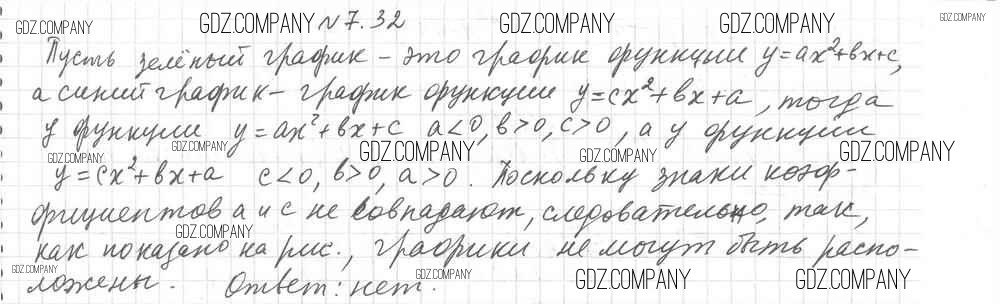 GDZ.COMPANY GDZ.COMPANY №7.32 GDZ.COMPANY GDZ.COMPANY GDZ.COMPANY
Пусть зелёный график – это график функции y=ax²+bx+c,
а синий график – график функции y=cx²+bx+a, тогда
у функции y=ax²+bx+c a<0, b>0, c>0, а у функции
GDZ.COMPANY GDZ.COMPANY GDZ.COMPANY GDZ.COMPANY GDZ.COMPANY
y=cx²+bx+a c<0, b>0, a>0. Поскольку знаки коэф-
фициентов a и c не совпадают, следовательно, так,
GDZ.COMPANY
как показано на рис., графики не могут быть распо-
GDZ.COMPANY GDZ.COMPANY GDZ.COMPANY GDZ.COMPANY
ложены. Ответ: нет.